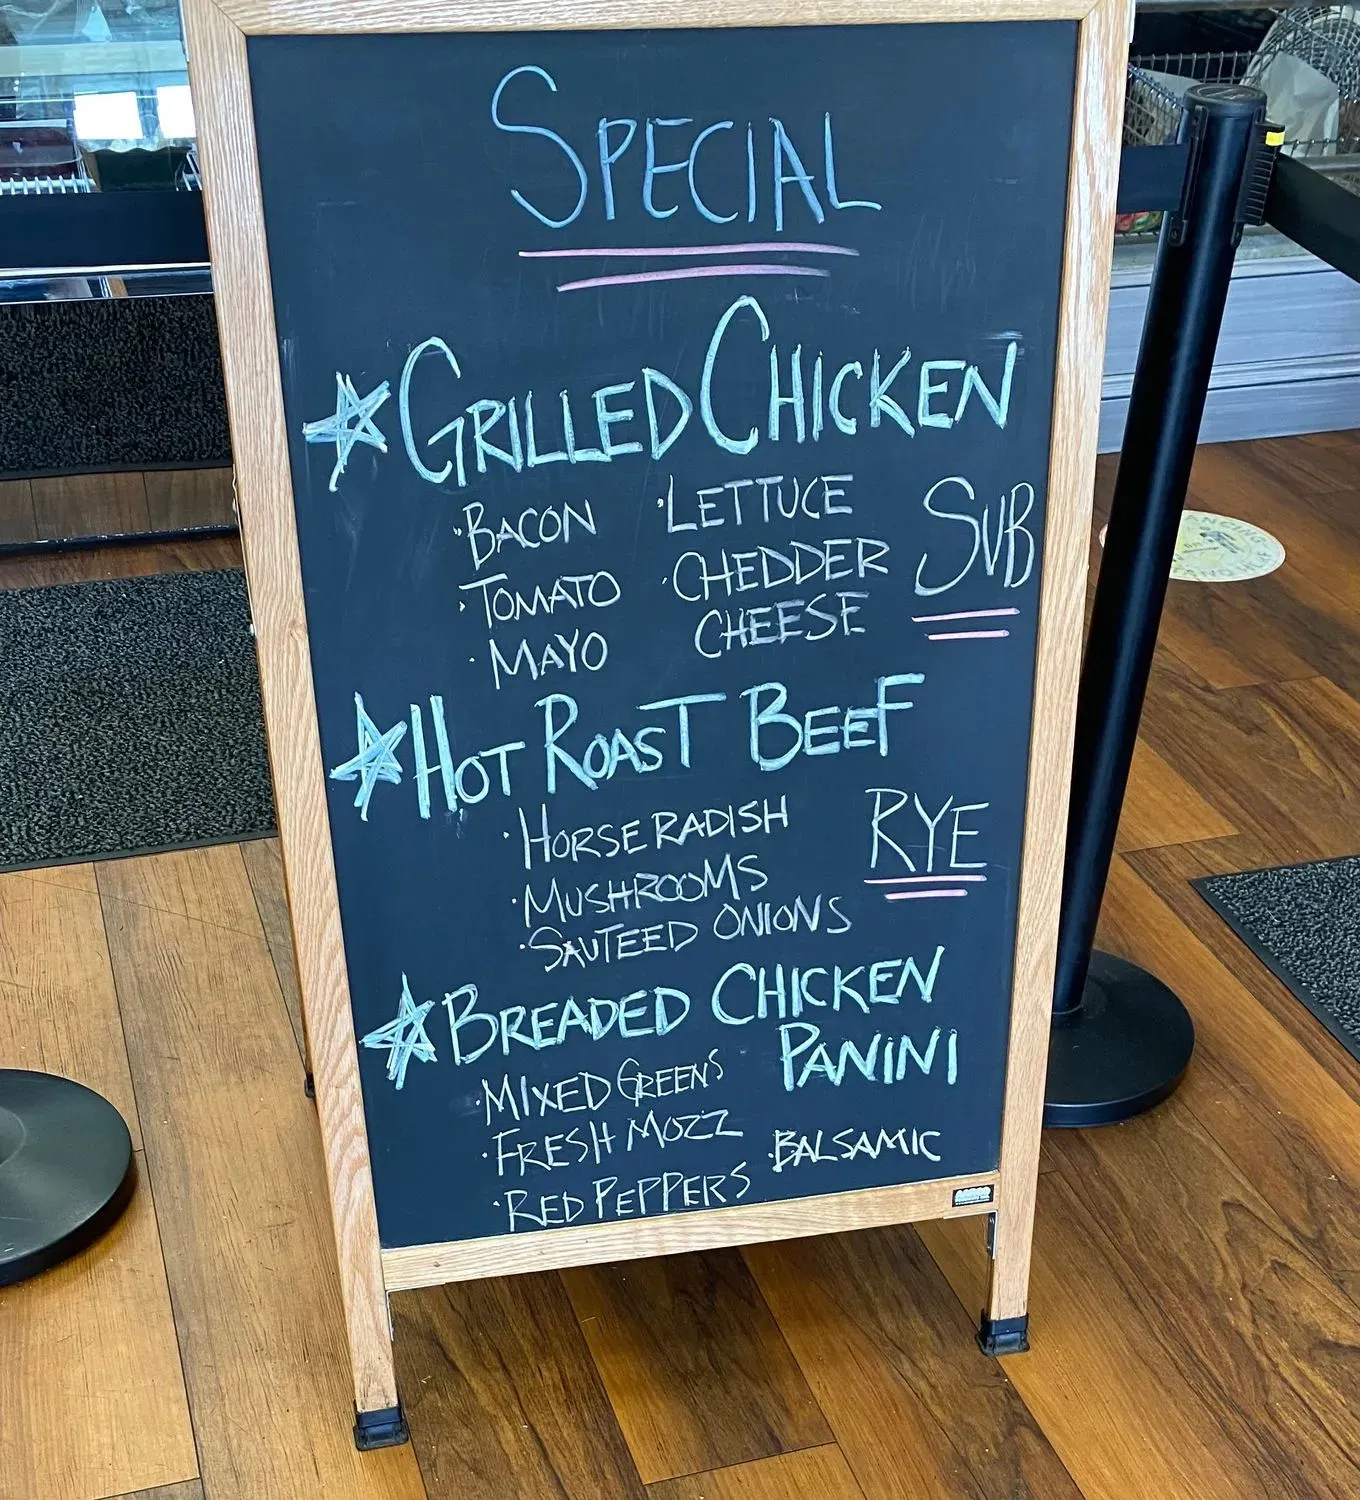 SPECIAL
GRILLED CHICKEN
SUB
·BACON
·LETTUCE
·TOMATO
·CHEDDER
CHEESE
·MAYO
HOT ROAST BEEF
RYE
·HORSERADISH
·MUSHROOMS
·SAUTEED ONIONS
BREADED CHICKEN
PANINI
·MIXED GREENS
·FRESH MOZZ
·BALSAMIC
·RED PEPPERS